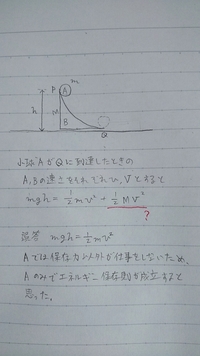 m
P A
h M
B
Q
小球AがQに到達したときの
A,Bの速さをそれぞれv,Vとすると
mgh = 1/2 mv² + 1/2 MV²
?
誤答 mgh = 1/2 mv²
Aでは保存力以外が仕事をしないため、
Aのみでエネルギー保存則が成立すると
思った。